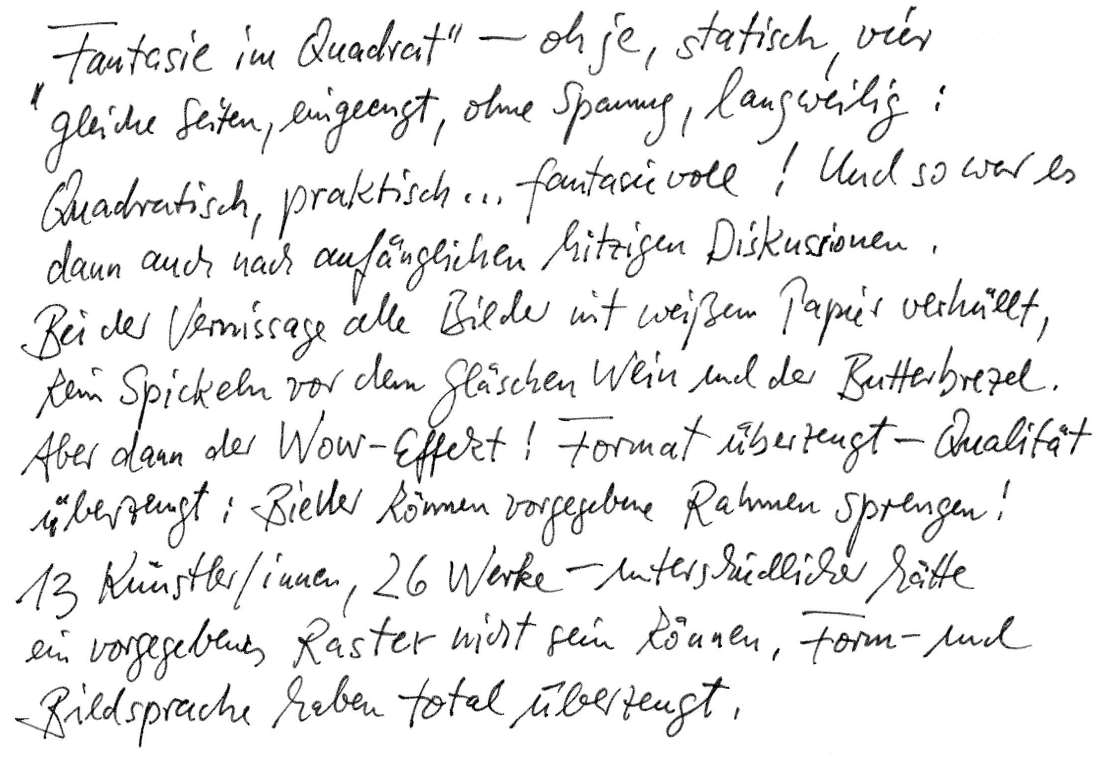 „Fantasie im Quadrat" – oh je, statisch, vier
gleiche Seiten, eingeengt, ohne Spannung, langweilig :
Quadratisch, praktisch... fantasievoll ! Und so war es
dann auch nach anfänglichen hitzigen Diskussionen.
Bei der Vernissage alle Bilder mit weißem Papier verhüllt,
kein Spickeln vor dem Gläschen Wein und der Butterbrezel.
Aber dann der Wow-Effekt ! Format überzeugt – Qualität
überzeugt : Bilder können vorgegebene Rahmen sprengen !
13 Künstler/innen, 26 Werke – unterschiedlicher hätte
ein vorgegebenes Raster nicht sein können, Form- und
Bildsprache haben total überzeugt.